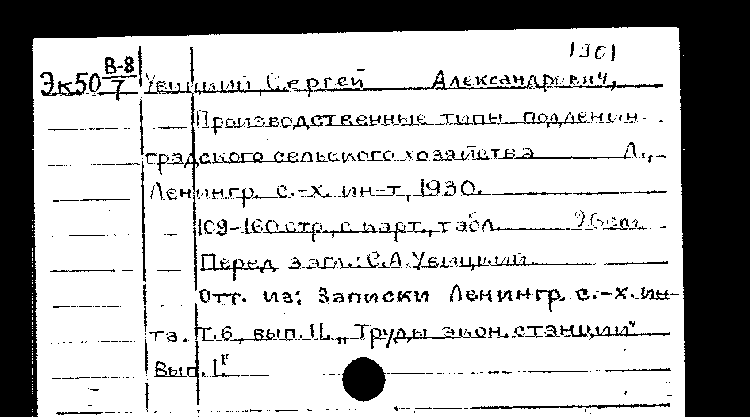 1901
Эк50 В-8/7 Увицкий, Сергей Александрович,
Производственные типы подленин-
градского сельского хозяйства Л.,
Ленингр. с.-х. ин-т, 1930.
109-160 стр., с карт., табл. 26 см.
Перед загл.: С.А. Увицкий
Отт. из: Записки Ленингр. с.-х. ин-
та. Т.6, вып. II. „Труды экон. станции"
Вып. I."